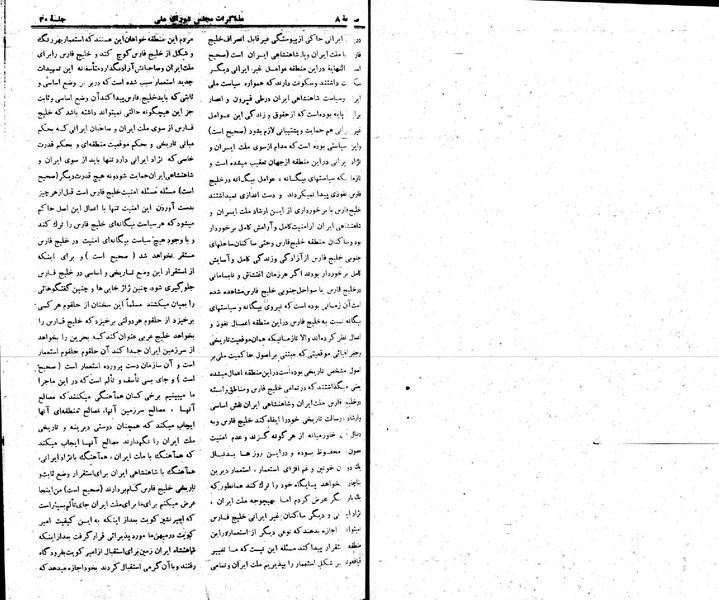 صفحهٔ ۸ مذاکرات مجلس شورای ملی جلسهٔ ۴۰
ایرانی حاکی از پیوستگی غیر قابل انصراف خلیج
ملت ایران و با شاهنشاهی ایران است (صحیح
النهایه در این منطقه عوامل غیر ایرانی دیگر
داشتند و سکونت دارند که همواره سیاست ملی
وسیاست شاهنشاهی ایران در طی قرون و اعصار
پایه بوده است که از حقوق و زندگی این عوامل
هم حمایت و پشتیبانی لازم بشود (صحیح است)
سیاستی بوده است که مدام از سوی ملت ایران و
نژاد ایرانی در این منطقه از جهان تعقیب میشده است و
تا زمانیکه سیاستهای بیگانه ، عوامل بیگانه در خلیج
فارس نفوذی پیدا نمیکردند و دست اندازی نمیداشتند
خلیج فارس با برخورداری از این ارشاد ملت ایران و
شاهنشاهی ایران از امنیت کامل و آرامش کامل برخوردار
بود و ساکنان منطقه خلیج فارس و حتی ساکنان ساحلهای
جنوبی خلیج فارس از آزادگی و زندگی کامل و آسایش
کامل برخوردار بودند اگر هر زمان اغتشاش و نابسامانی
در خلیج فارس یا سواحل جنوبی خلیج فارس مشاهده شده
است آن زمانی بوده است که نیروی بیگانه و سیاستهای
بیگانه نسبت به خلیج فارس در این منطقه اعمال نفوذ و
نظر کرده اند والا تا زمانیکه همان موقعیت تاریخی
وجغرافیائی موقعیتی که مبتنی بر اصول حاکمیت ملی بر
اصول مشخص تاریخی بوده است در این منطقه اعمال میشده
یعنی میگذاشتند که در تمامی خلیج فارس و مناطق وابسته
در خلیج فارس ملت ایران و شاهنشاهی ایران نقش اساسی
وارشاد رسالت تاریخی خود را ایفاء کند خلیج فارس و به
دنبال آن خاورمیانه از هر گونه گزند و عدم امنیت
مصون محفوظ بوده و در این روز ها بدنبال
یک دوران خونین و غم افزای استعمار ، استعمار دیرین
میخواهد پایگاه خود را ترک کند همانطور که
یک بار دیگر عرض کردم اما بهیچوجه ملت ایران ،
نژاد ایرانی و دیگر ساکنان غیر ایرانی خلیج فارس
نمیتوانند اجازه بدهند که نوعی دیگر از استعمار در این
منطقه استقرار پیدا کند مسئله این نیست که ما تغییر
بر شکل استعمار را بپذیریم ملت ایران و تمامی
مردم این منطقه خواهان این هستند که استعمار بهر رنگ
و شکل از خلیج فارس کوچ کند و خلیج فارس را برای
ملت ایران و صاحبانش آزاد بگذارد متأسفانه این تمهیدات
جدید استعمار سبب شده است که در برابر وضع اساسی و
ثابتی که باید خلیج فارس پیدا کند آن وضع اساسی و ثابت
جز این هیچگونه حالتی نمیتواند داشته باشد که خلیج
فارس از سوی ملت ایران و صاحبان ایرانی که بحکم
مبانی تاریخی و حکم موقعیت منطقه‌ای و بحکم قدرت
خاصی که نژاد ایرانی دارد تنها باید از سوی ایران و
شاهنشاهی ایران حمایت شود و نه هیچ قدرت دیگر (صحیح
است) مسئله مسئله امنیت خلیج فارس است قبل از هر چیز
بدست آوردن این امنیت تنها با اعمال این اصل حاکم
میشود که هر سیاست بیگانه‌ای خلیج فارس را ترک کند
و با وجود هیچ سیاست بیگانه‌ای امنیت در خلیج فارس
مستقر نخواهد شد (صحیح است) و برای اینکه
از استقرار این وضع تاریخی و اساسی در خلیج فارس
جلوگیری شود، چنین ژاژ خایی ها و چنین گفتگوهائی
را بمیان میکشند مسلماً این سخنان از حلقوم هر کسی
برخیزد از حلقوم هر دولتی برخیزد که خلیج فارس را
بخواهد خلیج عربی عنوان کند که بحرین را بخواهد
از سرزمین ایران جدا کند آن حلقوم حلقوم استعمار
است و آن سازمان دست پرورده استعمار است (صحیح
است) و جای بسی تأسف و تألم است که در این ماجرا
ما میبینیم برخی کسان هم‌آهنگی میکنند که مصالح
آنها ، مصالح سرزمین آنها، مصالح منطقه‌ای آنها
ایجاب میکند که همچنان دوستی دیرینه و تاریخی
ملت ایران را نگهدارند مصالح آنها ایجاب میکند
که همآهنگ با ملت ایران ، همآهنگ با نژاد ایرانی،
همآهنگ با شاهنشاهی ایران برای استقرار وضع ثابت و
تاریخی خلیج فارس گام بردارند (صحیح است) من اینجا
عرض میکنم برای ما برای ملت ایران جای تألم بسیار است
که امیرنشین کویت بعد از اینکه به این کیفیت امیر
کویت در میهن ما مورد پذیرائی قرار گرفت بعد از اینکه
شاهنشاه ایران زمین برای استقبال از امیر کویت بفرودگاه
رفتند و با آن گرمی استقبال کردند بخود اجازه میدهد که